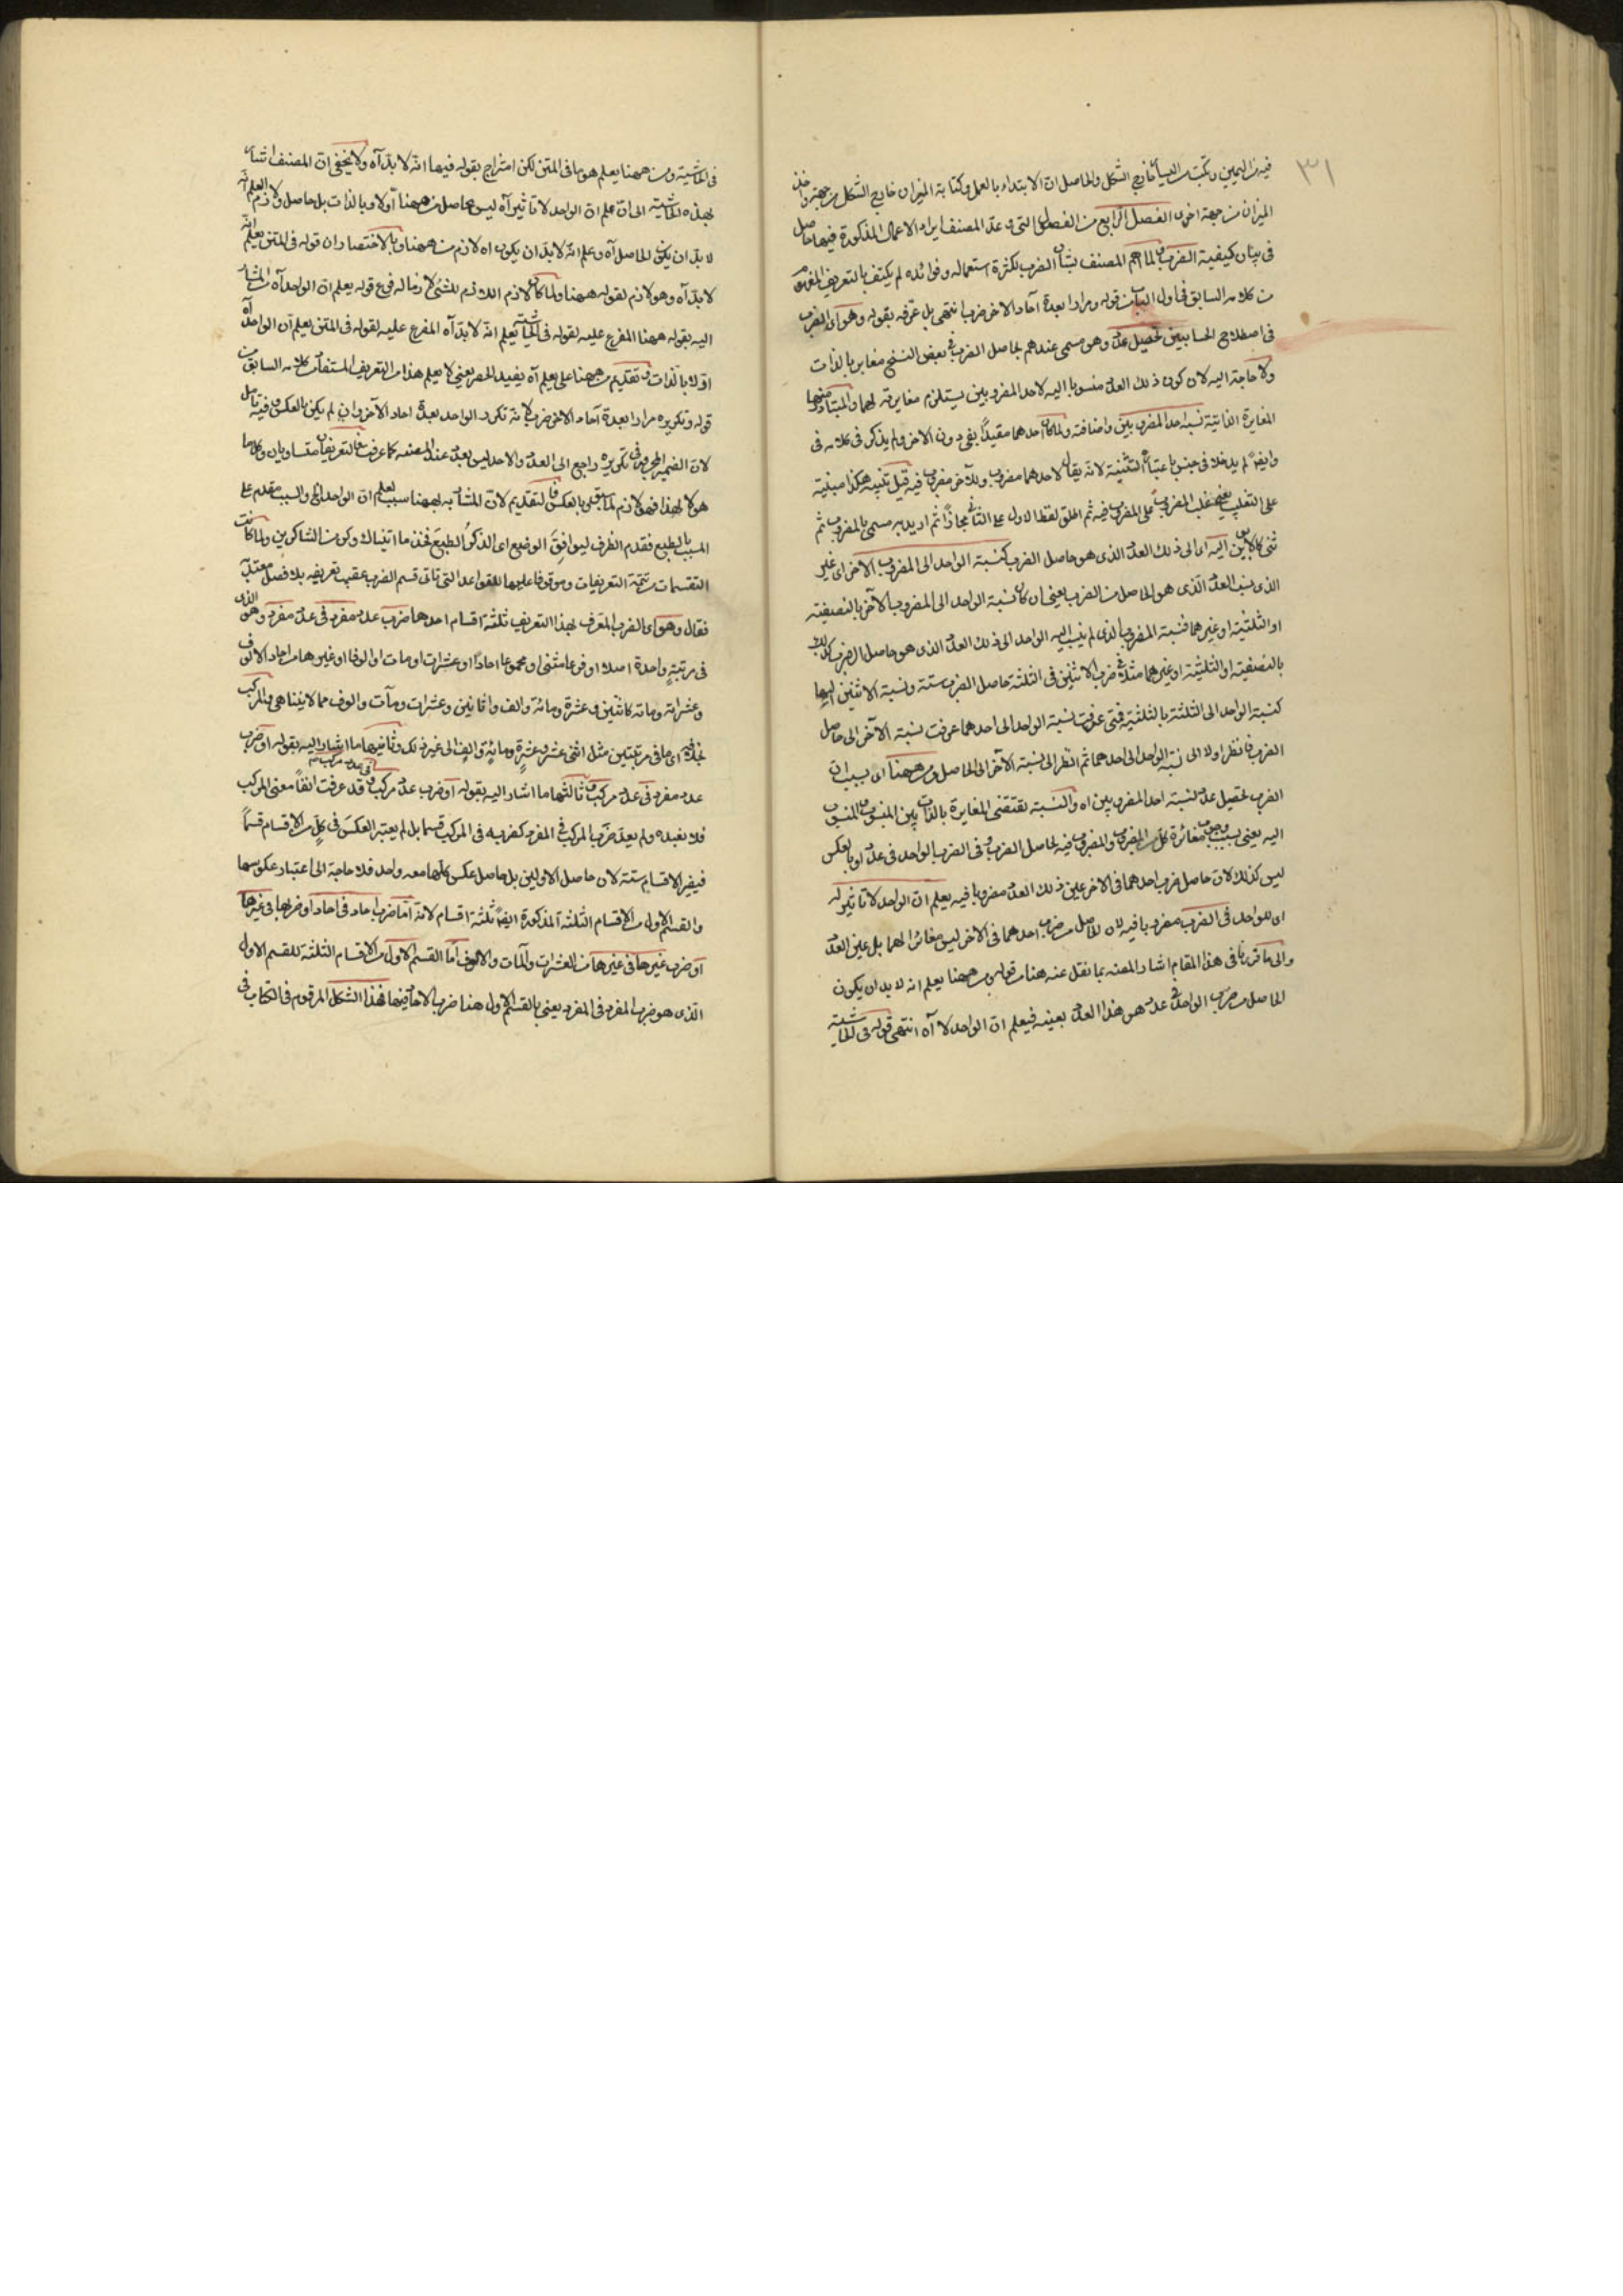 ٣١
فيه من اليمين وكتبت اليسار خارج الشكل والحاصل ان الابتداء بالعمل وكتابة الميزان خارج الشكل من جهة واخذ
الميزان من جهة اخرى الفصل الرابع من الفصول التي وعد المصنف ايراد الاعمال المذكورة فيها حاصل
في بيان كيفية الضرب ولما اهتم المصنف بشأن الضرب لكثرة استعماله وفوائده لم يكتف بالتعريف المفهوم
من كلامه السابق في اول الباب من قوله ومرارا بعدة آحاد الاخر ضرب انتهى بل عرّفه بقوله وهو اى الضرب
في اصطلاح الحسابيين تحصيل عدد وهو مسمى عندهم بحاصل الضرب وفي بعض النسخ مغاير بالذات
ولا حاجة اليه لان كون ذلك العدد منسوبا اليه لاحد المضروبين يستلزم مغايرته لهما والمتبادر منهما
المغايرة الذاتية نسبة احد المضروبين واضافته ولما كان احدهما مقيدًا بفي دون الاخر ولم يذكر في كلامه في
وايضًا لم يدخلا في جنس باعتباره التثنية لانه يقال لاحدهما مضروب وللآخر مضروب فيه قيل تثنيته هكذا مبنية
على التغليب يعني غلب المضروب على المضروب فيه ثم اطلق لفظ الاول على الثاني مجازًا ثم اريد به مسمى بالمضروب ثم
ثنى كالابوين اليه اى الى ذلك العدد الذى هو حاصل الضرب كنسبة الواحد الى المضروب الآخر اى غير
الذى نسب العدد الذى هو الحاصل من الضرب يعني ان كان نسبة الواحد الى المضروب الآخر بالنصفية
او الثلثية او غيرهما فنسبة المضروب الذى لم ينسب اليه الواحد الى ذلك العدد الذى هو حاصل الضرب كذلك
بالنصفية او الثلثية او غيرهما مثلا في ضرب الاثنين في الثلثة حاصل الضرب ستة ونسبة الاثنين اليها
كنسبة الواحد الى الثلثة بالثلثية فمتى عرفت نسبة الواحد الى احدهما عرفت نسبة الآخر الى حاصل
الضرب فانظر اولا الى نسبة الواحد الى احدهما ثم انظر الى نسبة الآخر الى الحاصل ومن ههنا اى بسبب ان
الضرب تحصيل عدد نسبة احد المضروبين اه والنسبة تقتضى المغايرة بالذات بين المنسوب والمنسوب
اليه يعنى بسبب وجوب مغائرة كل من المضروب والمضروب فيه لحاصل الضرب وفى الضرب الواحد فى عدد او بالعكس
ليس كذلك لان حاصل ضرب احدهما فى الاخر عين ذلك العدد مضروبا فيه يعلم ان الواحد لا تاثير له
اى للواحد فى الضرب مضروبا فيه لان الحاصل من ضرب احدهما فى الآخر ليس مغائرا لهما بل عين العدد
والى ما قررنا فى هذا المقام اشار المصنف بما نقل عنه هنا من قوله ومن ههنا يعلم انه لا بد ان يكون
الحاصل من ضرب الواحد فى عدد هو هذا العدد بعينه فيعلم ان الواحد لا آه انتهى قوله فى الحاشية
فى الحاشية ومن ههنا يعلم هو ما فى المتن لكن امتزاج بقوله فيها انه لا بد آه ولا يخفى ان المصنف اشار
بهذه الحاشية الى ان علم ان الواحد لا تاثير آه ليس حاصل من ههنا اولا وبالذات بل حاصل ولازم العلم انه
لا بد ان يكون الحاصل آه وعلم انه لا بد ان يكون اه لازم من ههنا وبالاختصار ان قوله فى المتن يعلم انه
لا بد آه وهو لازم لقوله ههنا ولما كان لازم اللازم للشئ لازما له فرع قوله يعلم ان الواحد آه المشار
اليه بقوله ههنا المفرع عليه لقوله فى الحاشية يعلم انه لا بد آه المفرع عليه لقوله فى المتن يعلم ان الواحد آه
اولا بالذات وتقديم من ههنا على يعلم آه يفيد الحصر يعنى لا يعلم هذا من التعريف المستفاد من كلامه السابق من
قوله وتكريره مرارا بعدة آحاد الاخر ضرب لانه تكرر الواحد بعدة احاد الآخر وان لم يكن بالعكس وفيه تامل
لان الضمير المجرور فى تكريره راجع الى العدد والاحد ليس بعدد عند المصنف كما عرفت فالتعريفان متساويان وكلما
هو لازم لهذا فهو لازم لما سبق وبالعكس فالتقديم لان المشار به بههنا سبب لعلم ان الواحد الخ والسبب مقدم على
المسبب بالطبع فقدم الظرف ليوافق الوضع اى الذكر الطبع فخذ ما اتيناك وكن من الشاكرين ولما كانت
التقسيمات من تتمة التعريفات وموقوفا عليها للقواعد التى تأتى قسم الضرب عقيب تعريفه بلا فصل معتدٍّ
فقال وهو اى الضرب المعرف بهذا التعريف ثلثة اقسام احدها ضرب عدد مفرد فى عدد مفرد وهو الذى
فى مرتبة واحدة اصلا او فرعا مثنى او مجموعا احادًا او عشرات او مآت او الوفا او غيرها من احاد الالوف
وعشراته ومآته كاثنين وعشرة ومائة والف واثنين وعشرات ومآت والوف مما لا يتناهى والمركب
بخلافه اى ما فى مرتبتين مثل اثنى عشر وعشرة ومائة والف الى غير ذلك وثانيها ما اشار اليه بقوله او ضرب
عدد مفرد فى عدد مركب وثالثها ما اشار اليه بقوله او ضرب عدد مركب فى عدد مركب قد عرفت انفا معنى المركب
فلا يفيده ولم يعد ضرب المركب فى المفرد كضربه فى المركب قسما بل لم يعتبر العكس فى كل من الاقسام قسمًا
فيصير الاقسام ستة لان حاصل الاولين بل حاصل عكس كلها معه واحد فلا حاجة الى اعتبار عكوسها
والقسم الاول من الاقسام الثلثة المذكورة ايضًا ثلثة اقسام لانه اما ضرب احاد فى احاد او ضربها فى غيرها
او ضرب غيرها فى غيرها من العشرات والمآت والالوف اما القسم الاول من الاقسام الثلثة للقسم الاول
الذى هو ضرب المفرد فى المفرد يعنى بالقسم الاول هنا ضرب الاحاد فيها فهذا الشكل المرقوم فى الكتاب فى